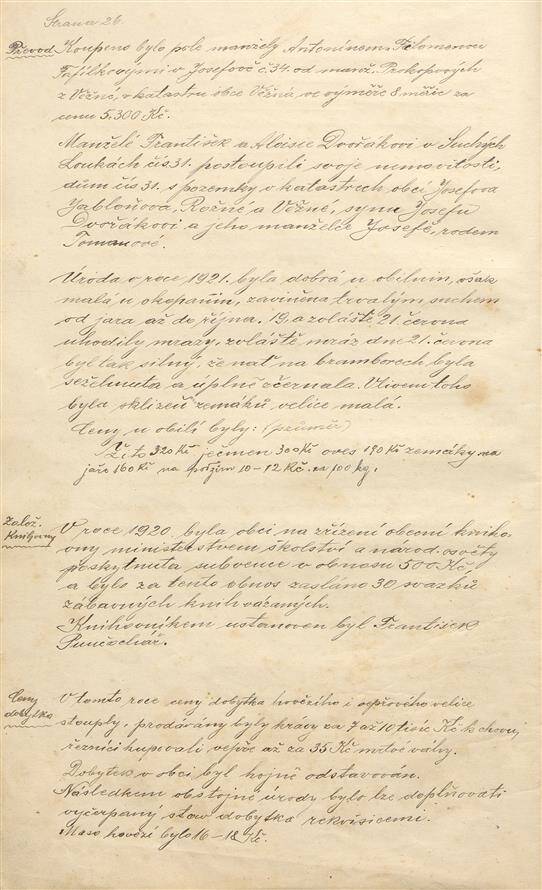 Strana 26.
Převod Koupeno bylo pole manžely Antonínem, Filomenou
Fafílkovými v Josefově č. 34. od manž. Prokopových
z Věžné, v katastru obce Věžná ve výměře 8 měřic za
cenu 5.300 Kč.
Manželé František a Aloisie Dvořákovi v Suchých
Loukách čís 31. postoupili svoje nemovitosti,
dům čís 31. s pozemky v katastrech obcí Josefova
Jabloňova, Rožné a Věžné, synu Josefu
Dvořákovi a jeho manželce Josefě, rodem
Tomanové.
Úroda v roce 1921. byla dobrá u obilnin, však
malá u okopanin, zaviněna trvalým suchem
od jara až do října. 19, a zvláště 21. června
uhodily mrazy, zvláště mráz dne 21. června
byl tak silný, že nať na bramborech byla
sežehnuta a úplně zčernala. Vlivem toho
byla sklizeň zemáků velice malá.
Ceny u obilí byly: (průměr)
Žito 320 Kč ječmen 300 Kč oves 190 Kč zemčáky na
jaře 160 Kč na podzim 10-12 Kč. za 100 kg.
Založ. knihovny
V roce 1920. byla obci na zřízení obecní kniho-
vny ministerstvem školství a národ. osvěty
poskytnuta subvence v obnosu 500 Kč
a bylo za tento obnos zasláno 30 svazků
zábavných knih vázaných.
Knihovníkem ustanoven byl František
Punčochář.
Ceny dobytka
V tomto roce ceny dobytka hovězího i vepřového velice
stouply, prodávány byly krávy za 7 až 10 tisíc Kč k chovu,
řezníci kupovali vepře až za 35 Kč mrtvé váhy.
Dobytek v obci byl hojně odstavován.
Následkem obstojné úrody bylo lze doplňovati
vyčerpaný stav dobytka rekvisicemi.
Maso hovězí bylo 16-18 Kč.